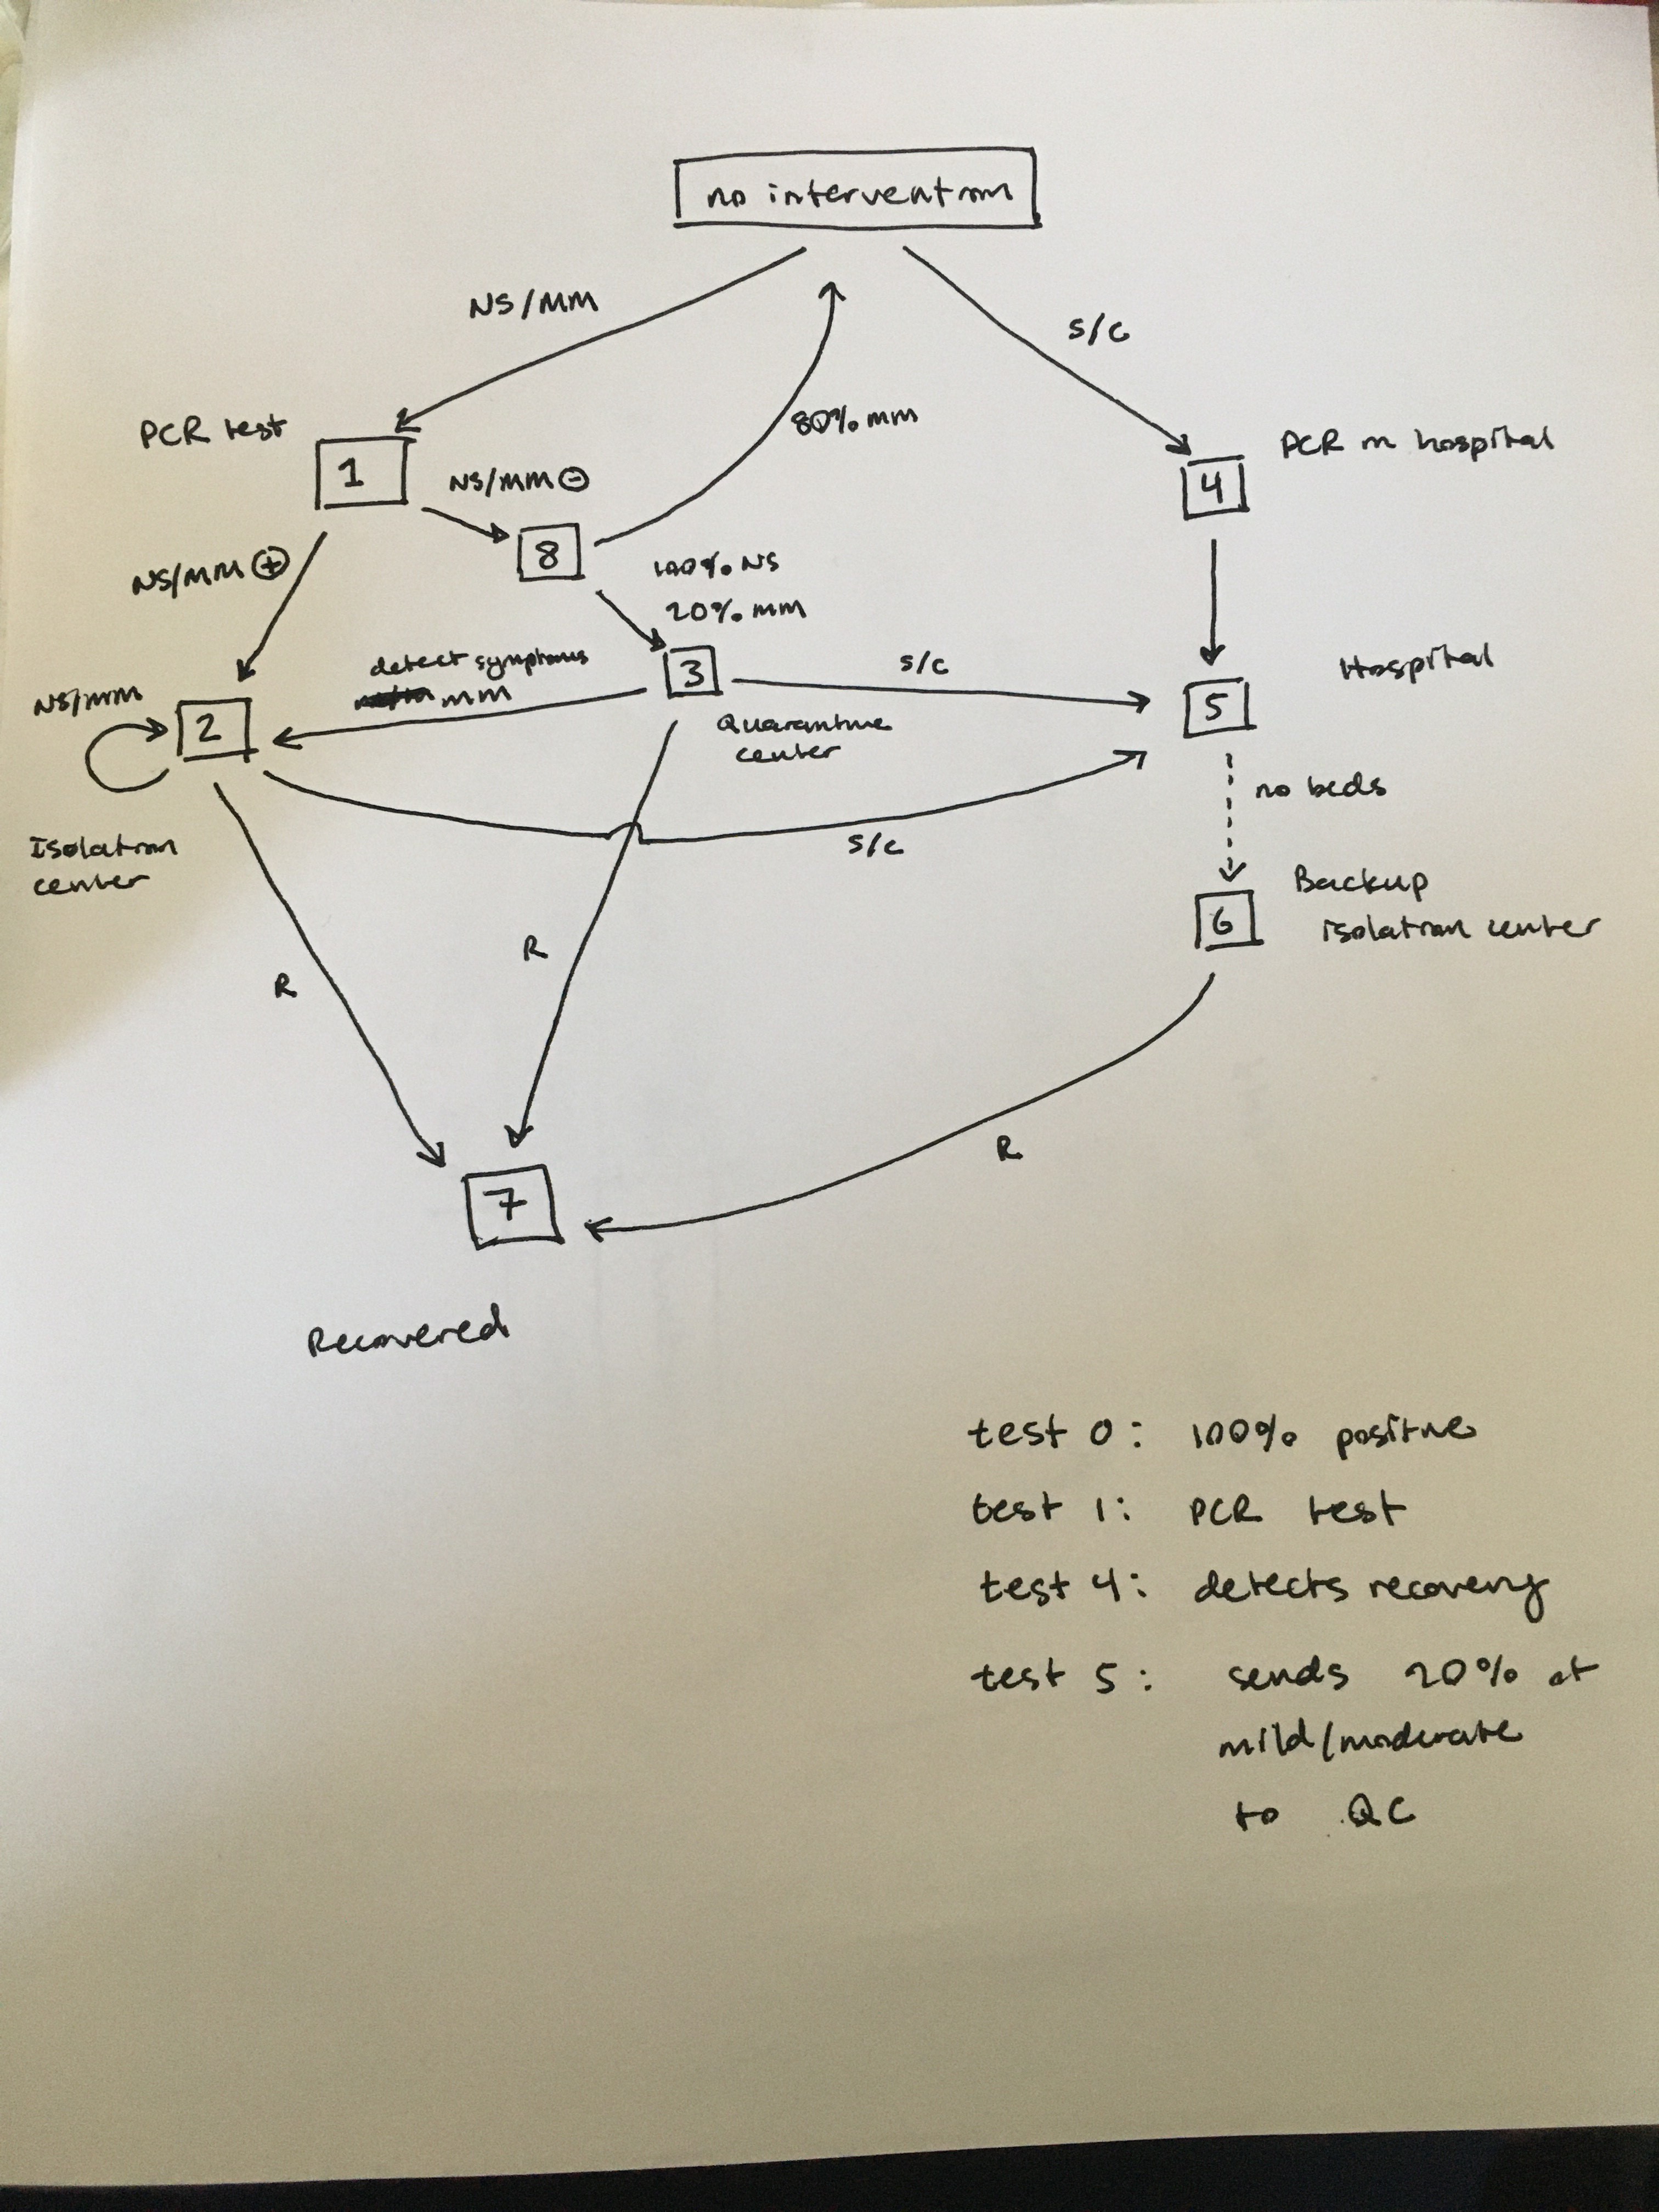 no intervention
NS/MM
S/C
80% mm
PCR test
1
NS/MM ⊖
PCR in hospital
4
8
NS/MM ⊕
100% NS
20% mm
detect symptoms
mm
3
S/C
Hospital
5
NS/MM
2
Quarantine
center
no beds
S/C
Isolation
center
Backup
6
isolation center
R
R
R
7
Recovered
test 0: 100% positive
test 1: PCR test
test 4: detects recovery
test 5: sends 20% of
mild/moderate
to QC